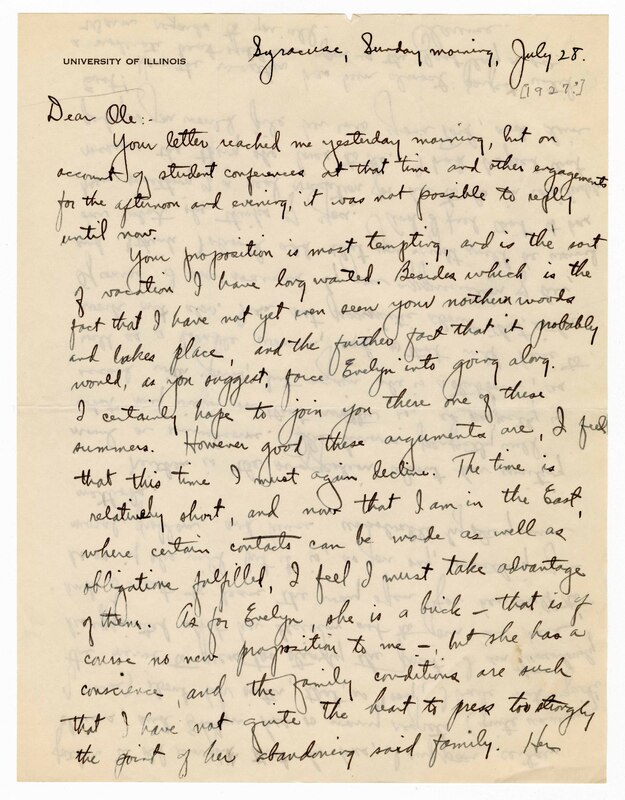 UNIVERSITY OF ILLINOIS
Syracuse, Sunday morning, July 28.
[1927?]
Dear Ole:-
Your letter reached me yesterday morning, but on
account of student conferences at that time and other engagements
for the afternoon and evening, it was not possible to reply
until now.
Your proposition is most tempting, and is the sort
of vacation I have long wanted. Besides which is the
fact that I have not yet even seen your northern woods
and lakes place, and the further fact that it probably
would, as you suggest, force Evelyn into going along.
I certainly hope to join you there one of these
summers. However good these arguments are, I feel
that this time I must again decline. The time is
relatively short, and now that I am in the East,
where certain contacts can be made as well as
obligations fulfilled, I feel I must take advantage
of them. As for Evelyn, she is a brick – that is of
course no new proposition to me –, but she has a
conscience, and the family conditions are such
that I have not quite the heart to press too strongly
the point of her abandoning said family. Her